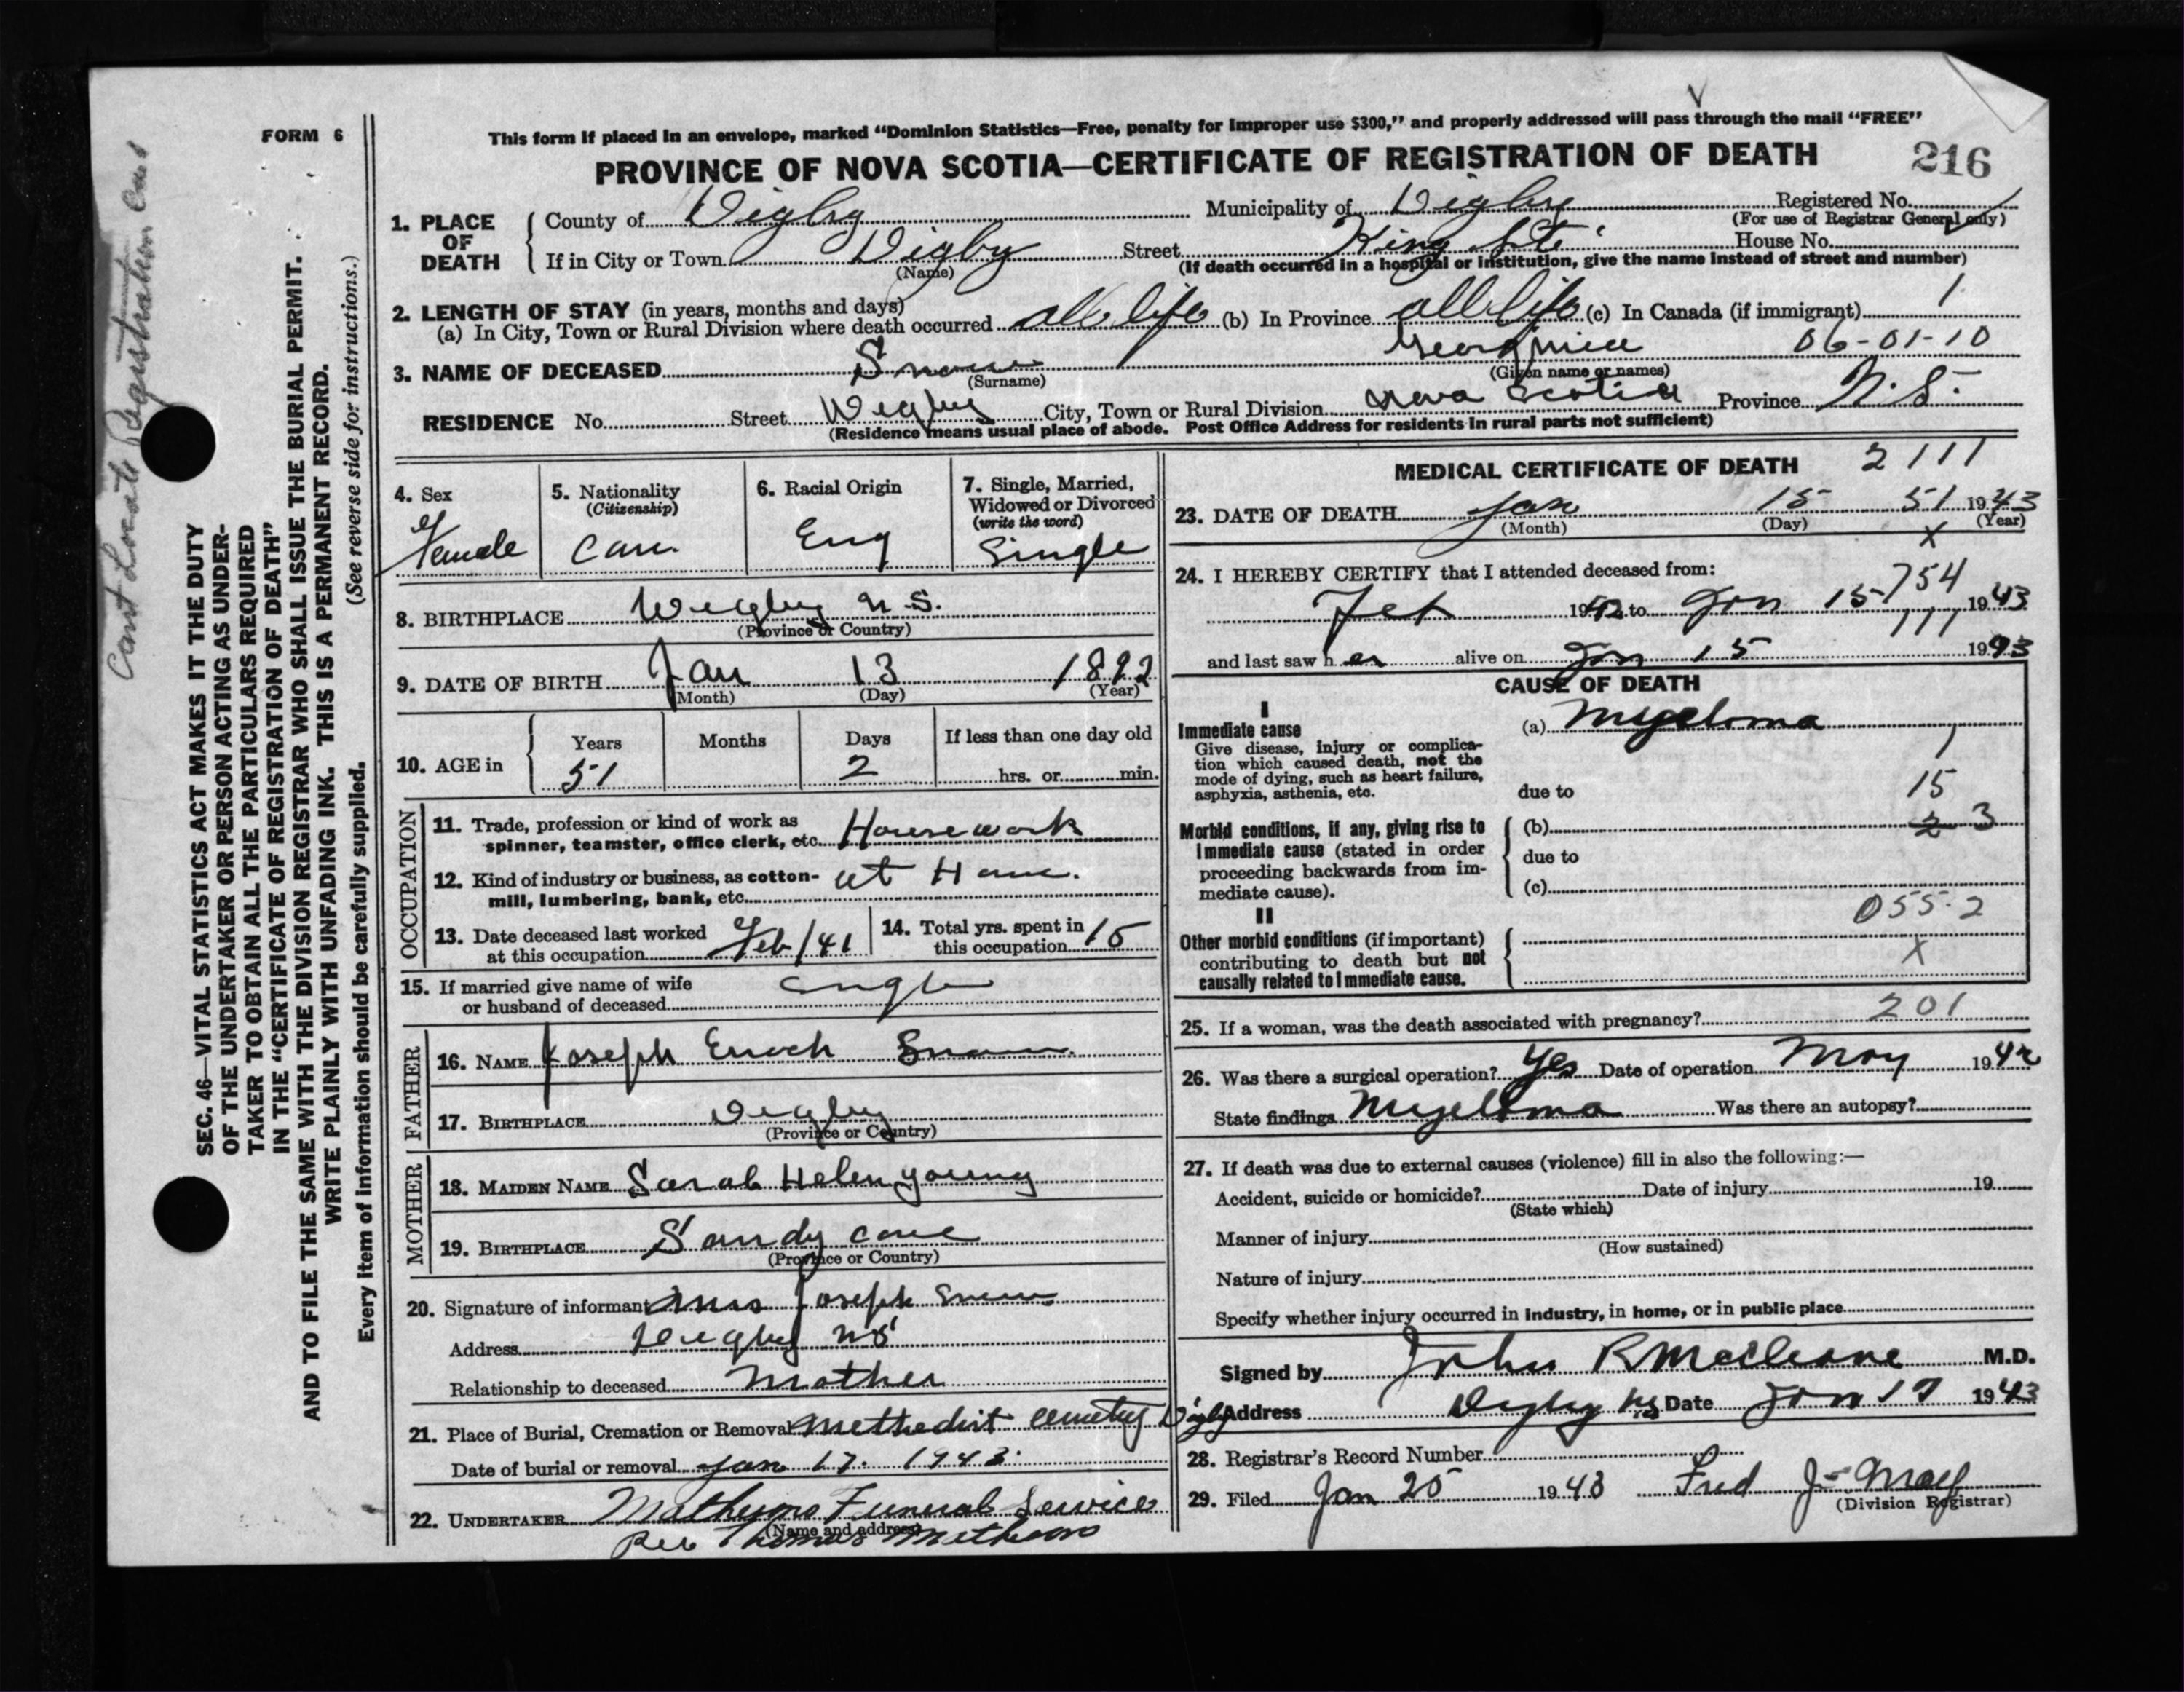 Cant Locate Registration Card
FORM 6
SEC. 46—VITAL STATISTICS ACT MAKES IT THE DUTY
OF THE UNDERTAKER OR PERSON ACTING AS UNDER-
TAKER TO OBTAIN ALL THE PARTICULARS REQUIRED
IN THE "CERTIFICATE OF REGISTRATION OF DEATH"
AND TO FILE THE SAME WITH THE DIVISION REGISTRAR WHO SHALL ISSUE THE BURIAL PERMIT.
WRITE PLAINLY WITH UNFADING INK. THIS IS A PERMANENT RECORD.
Every item of information should be carefully supplied. (See reverse side for instructions.)
This form if placed in an envelope, marked "Dominion Statistics—Free, penalty for improper use $300," and properly addressed will pass through the mail "FREE"
PROVINCE OF NOVA SCOTIA—CERTIFICATE OF REGISTRATION OF DEATH 216
1. PLACE OF DEATH County of Digby Municipality of Digby Registered No.
(For use of Registrar General only)
If in City or Town Digby Street King St. House No.
(Name) (If death occurred in a hospital or institution, give the name instead of street and number)
2. LENGTH OF STAY (in years, months and days)
(a) In City, Town or Rural Division where death occurred all life (b) In Province all life (c) In Canada (if immigrant) 1
3. NAME OF DECEASED Snow Georgina 06-01-10
(Surname) (Given name or names)
RESIDENCE No. Street Digby City, Town or Rural Division Nova Scotia Province N.S.
(Residence means usual place of abode. Post Office Address for residents in rural parts not sufficient)
4. Sex Female
5. Nationality (Citizenship) Can.
6. Racial Origin Eng
7. Single, Married, Widowed or Divorced (write the word) Single
8. BIRTHPLACE Digby N.S.
(Province or Country)
9. DATE OF BIRTH Jan 13 1892
(Month) (Day) (Year)
10. AGE in Years Months Days If less than one day old
51 2 hrs. or min.
OCCUPATION
11. Trade, profession or kind of work as
spinner, teamster, office clerk, etc. Housework
12. Kind of industry or business, as cotton-
mill, lumbering, bank, etc. at Home.
13. Date deceased last worked
at this occupation Feb/41
14. Total yrs. spent in
this occupation 15
15. If married give name of wife
or husband of deceased
FATHER
16. NAME Joseph Enoch Snow
17. BIRTHPLACE Digby
(Province or Country)
MOTHER
18. MAIDEN NAME Sarah Helen Young
19. BIRTHPLACE Sandy Cove
(Province or Country)
20. Signature of informant Mrs Joseph Snow
Address Digby NS
Relationship to deceased Mother
21. Place of Burial, Cremation or Removal Methodist Cemetery Digby
Date of burial or removal Jan 17. 1943.
22. UNDERTAKER Funeral Service
(Name and address)
Per Thomas
MEDICAL CERTIFICATE OF DEATH 2111
23. DATE OF DEATH Jan 15 51 1943
(Month) (Day) (Year)
X
24. I HEREBY CERTIFY that I attended deceased from:
754
Feb 1942 to Jan 15 1943
111
and last saw her alive on Jan 15 1943
CAUSE OF DEATH
I
Immediate cause (a) Myeloma
Give disease, injury or complica-
tion which caused death, not the
mode of dying, such as heart failure,
asphyxia, asthenia, etc.
1
due to 15
Morbid conditions, if any, giving rise to
immediate cause (stated in order
proceeding backwards from im-
mediate cause).
(b) 2 3
due to
(c)
055.2
II
Other morbid conditions (if important)
contributing to death but not
causally related to immediate cause.
X
25. If a woman, was the death associated with pregnancy? 201
26. Was there a surgical operation? Yes Date of operation May 1942
State findings Myeloma Was there an autopsy?
27. If death was due to external causes (violence) fill in also the following:—
Accident, suicide or homicide? Date of injury 19
(State which)
Manner of injury
(How sustained)
Nature of injury
Specify whether injury occurred in industry, in home, or in public place
Signed by John R M.D.
Address Digby NS Date Jan 17 1943
28. Registrar's Record Number
29. Filed Jan 25 1943 Fred J
(Division Registrar)